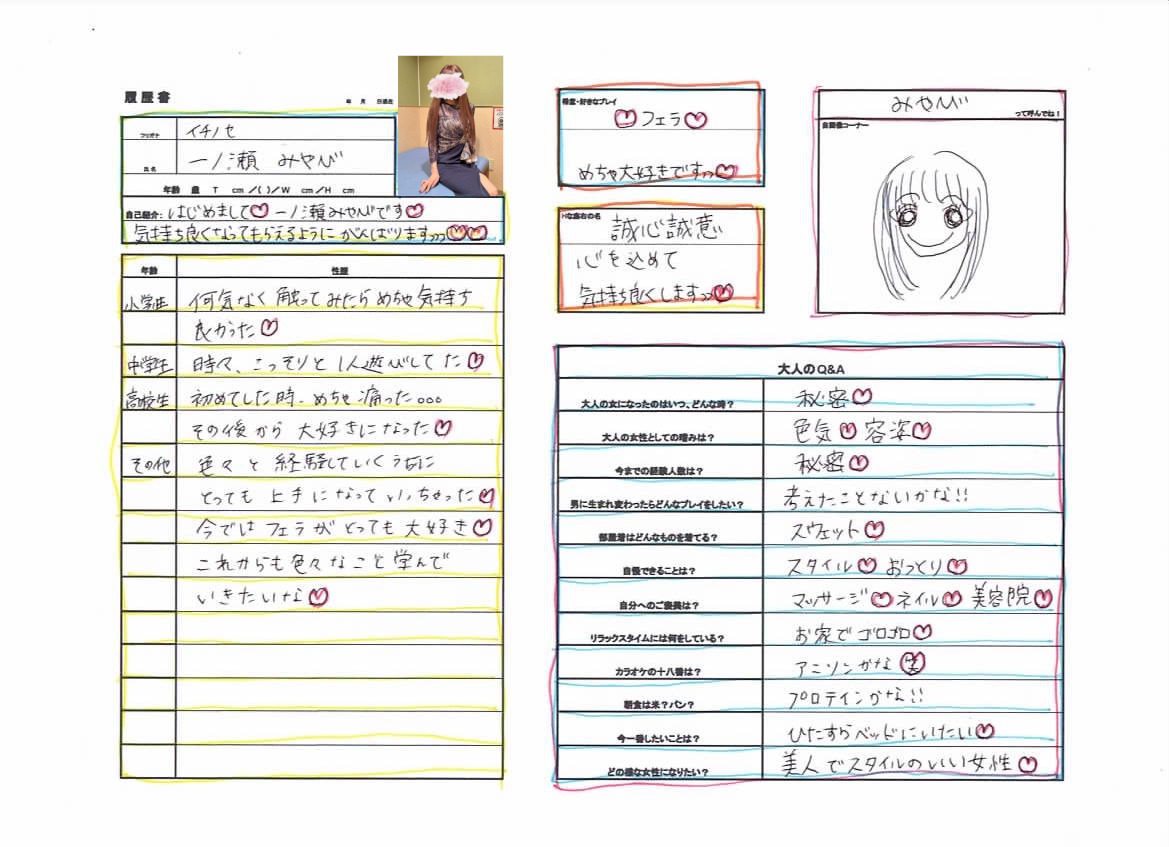 履歴書
年 月 日現在
フリガナ イチノセ
氏名 一ノ瀬 みやび
年齢 歳 T cm/( )/W cm/H cm
自己紹介: はじめまして♡ 一ノ瀬みやびです♡
気持ち良くなってもらえるように がんばりますっっっ♡♡
年齢 性歴
その他 色々と経験していくうちに
とっても上手になっていっちゃった♡
今ではフェラがとっても大好き♡
これからも色々なこと学んで
いきたいな♡
得意・好きなプレイ
♡フェラ♡
めちゃ大好きですっっ♡
Hな座右の名
誠心誠意
心を込めて
気持ち良くしますっっ♡
みやび
って呼んでね!
自画像コーナー
大人のQ&A
大人の女になったのはいつ、どんな時? 秘密♡
大人の女性としての嗜みは? 色気♡ 容姿♡
今までの経験人数は? 秘密♡
男に生まれ変わったらどんなプレイをしたい? 考えたことないかな!!
部屋着はどんなものを着てる? スウェット♡
自慢できることは? スタイル♡ おっとり♡
自分へのご褒美は? マッサージ♡ ネイル♡ 美容院♡
リラックスタイムには何をしている? お家でゴロゴロ♡
カラオケの十八番は? アニソンかな
朝食は米?パン? プロテインかな!!
今一番したいことは? ひたすらベッドにいたい♡
どの様な女性になりたい? 美人でスタイルのいい女性♡